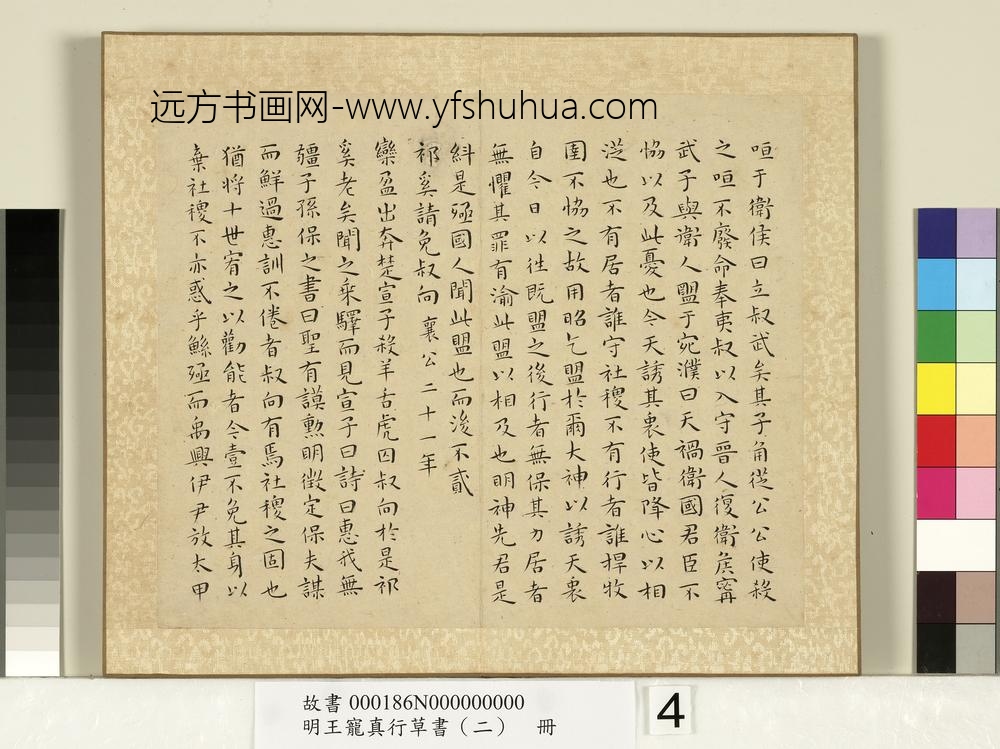 远方书画网-www.yfshuhua.com
咺于衛侯曰立叔武矣其子角從公公使殺
之咺不廢命奉夷叔以入守晉人復衛侯甯
武子與衛人盟于宛濮曰天禍衛國君臣不
恊以及此憂也今天誘其衷使皆降心以相
從也不有居者誰守社稷不有行者誰捍牧
圉不恊之故用昭乞盟於爾大神以誘天衷
自今日以往既盟之後行者無保其力居者
無懼其罪有渝此盟以相及也明神先君是
糾是殛國人聞此盟也而後不貳
祁奚請免叔向 襄公二十一年
欒盈出奔楚宣子殺羊舌虎囚叔向於是祁
奚老矣聞之乘驛而見宣子曰詩曰惠我無
疆子孫保之書曰聖有謨勲明徵定保夫謀
而鮮過惠訓不倦者叔向有焉社稷之固也
猶將十世宥之以勸能者今壹不免其身以
棄社稷不亦惑乎鯀殛而禹興伊尹放太甲
故書000186N000000000
明王寵真行草書（二） 冊
4